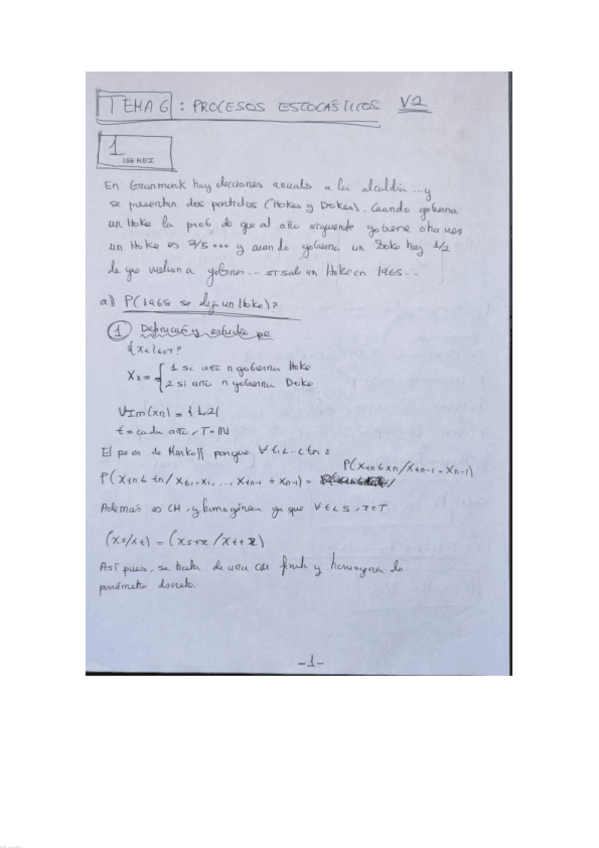 TEMA 6 : PROCESOS ESTOCÁSTICOS V2
1
En Granmank hay elecciones anuales a la alcaldía ... y
se presentan dos partidos (Hokes y Dokes). Cuando gobierna
un Hoke la prob de que al año siguiente gobierne otra vez
un Hoke es 3/5 ... y cuando gobierna un Doke hay 1/2
de que vuelvan a gobernar ... si sale un Hoke en 1965 ..
a) P(1965 se elija un Hoke)?
1 Definición y estudio pe
{Xt}t∈T?
Xn = { 1 si año n gobierna Hoke
2 si año n gobierna Doke
VIm(xn) = {1,2}
t = cada año, T = IN
El peso de Markoff porque ∀ t1 < .. < tn :
P(Xtn ≤ xn/Xtn-1 = Xn-1)
P(Xtn ≤ tn / Xt1 = x1, ..., Xtn-1 = Xn-1) =
Además es CM y homogénea ya que ∀ t < s, r ∈ T.
(Xs/Xt) = (Xs+r / Xt+r)
Así pues, se trata de una CM finita y homogénea de
parámetro discreto.
-1-